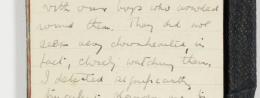 with our boys who crowded
round them. They did not
seem very downhearted, in
fact, closely watching them
I detected a significantly